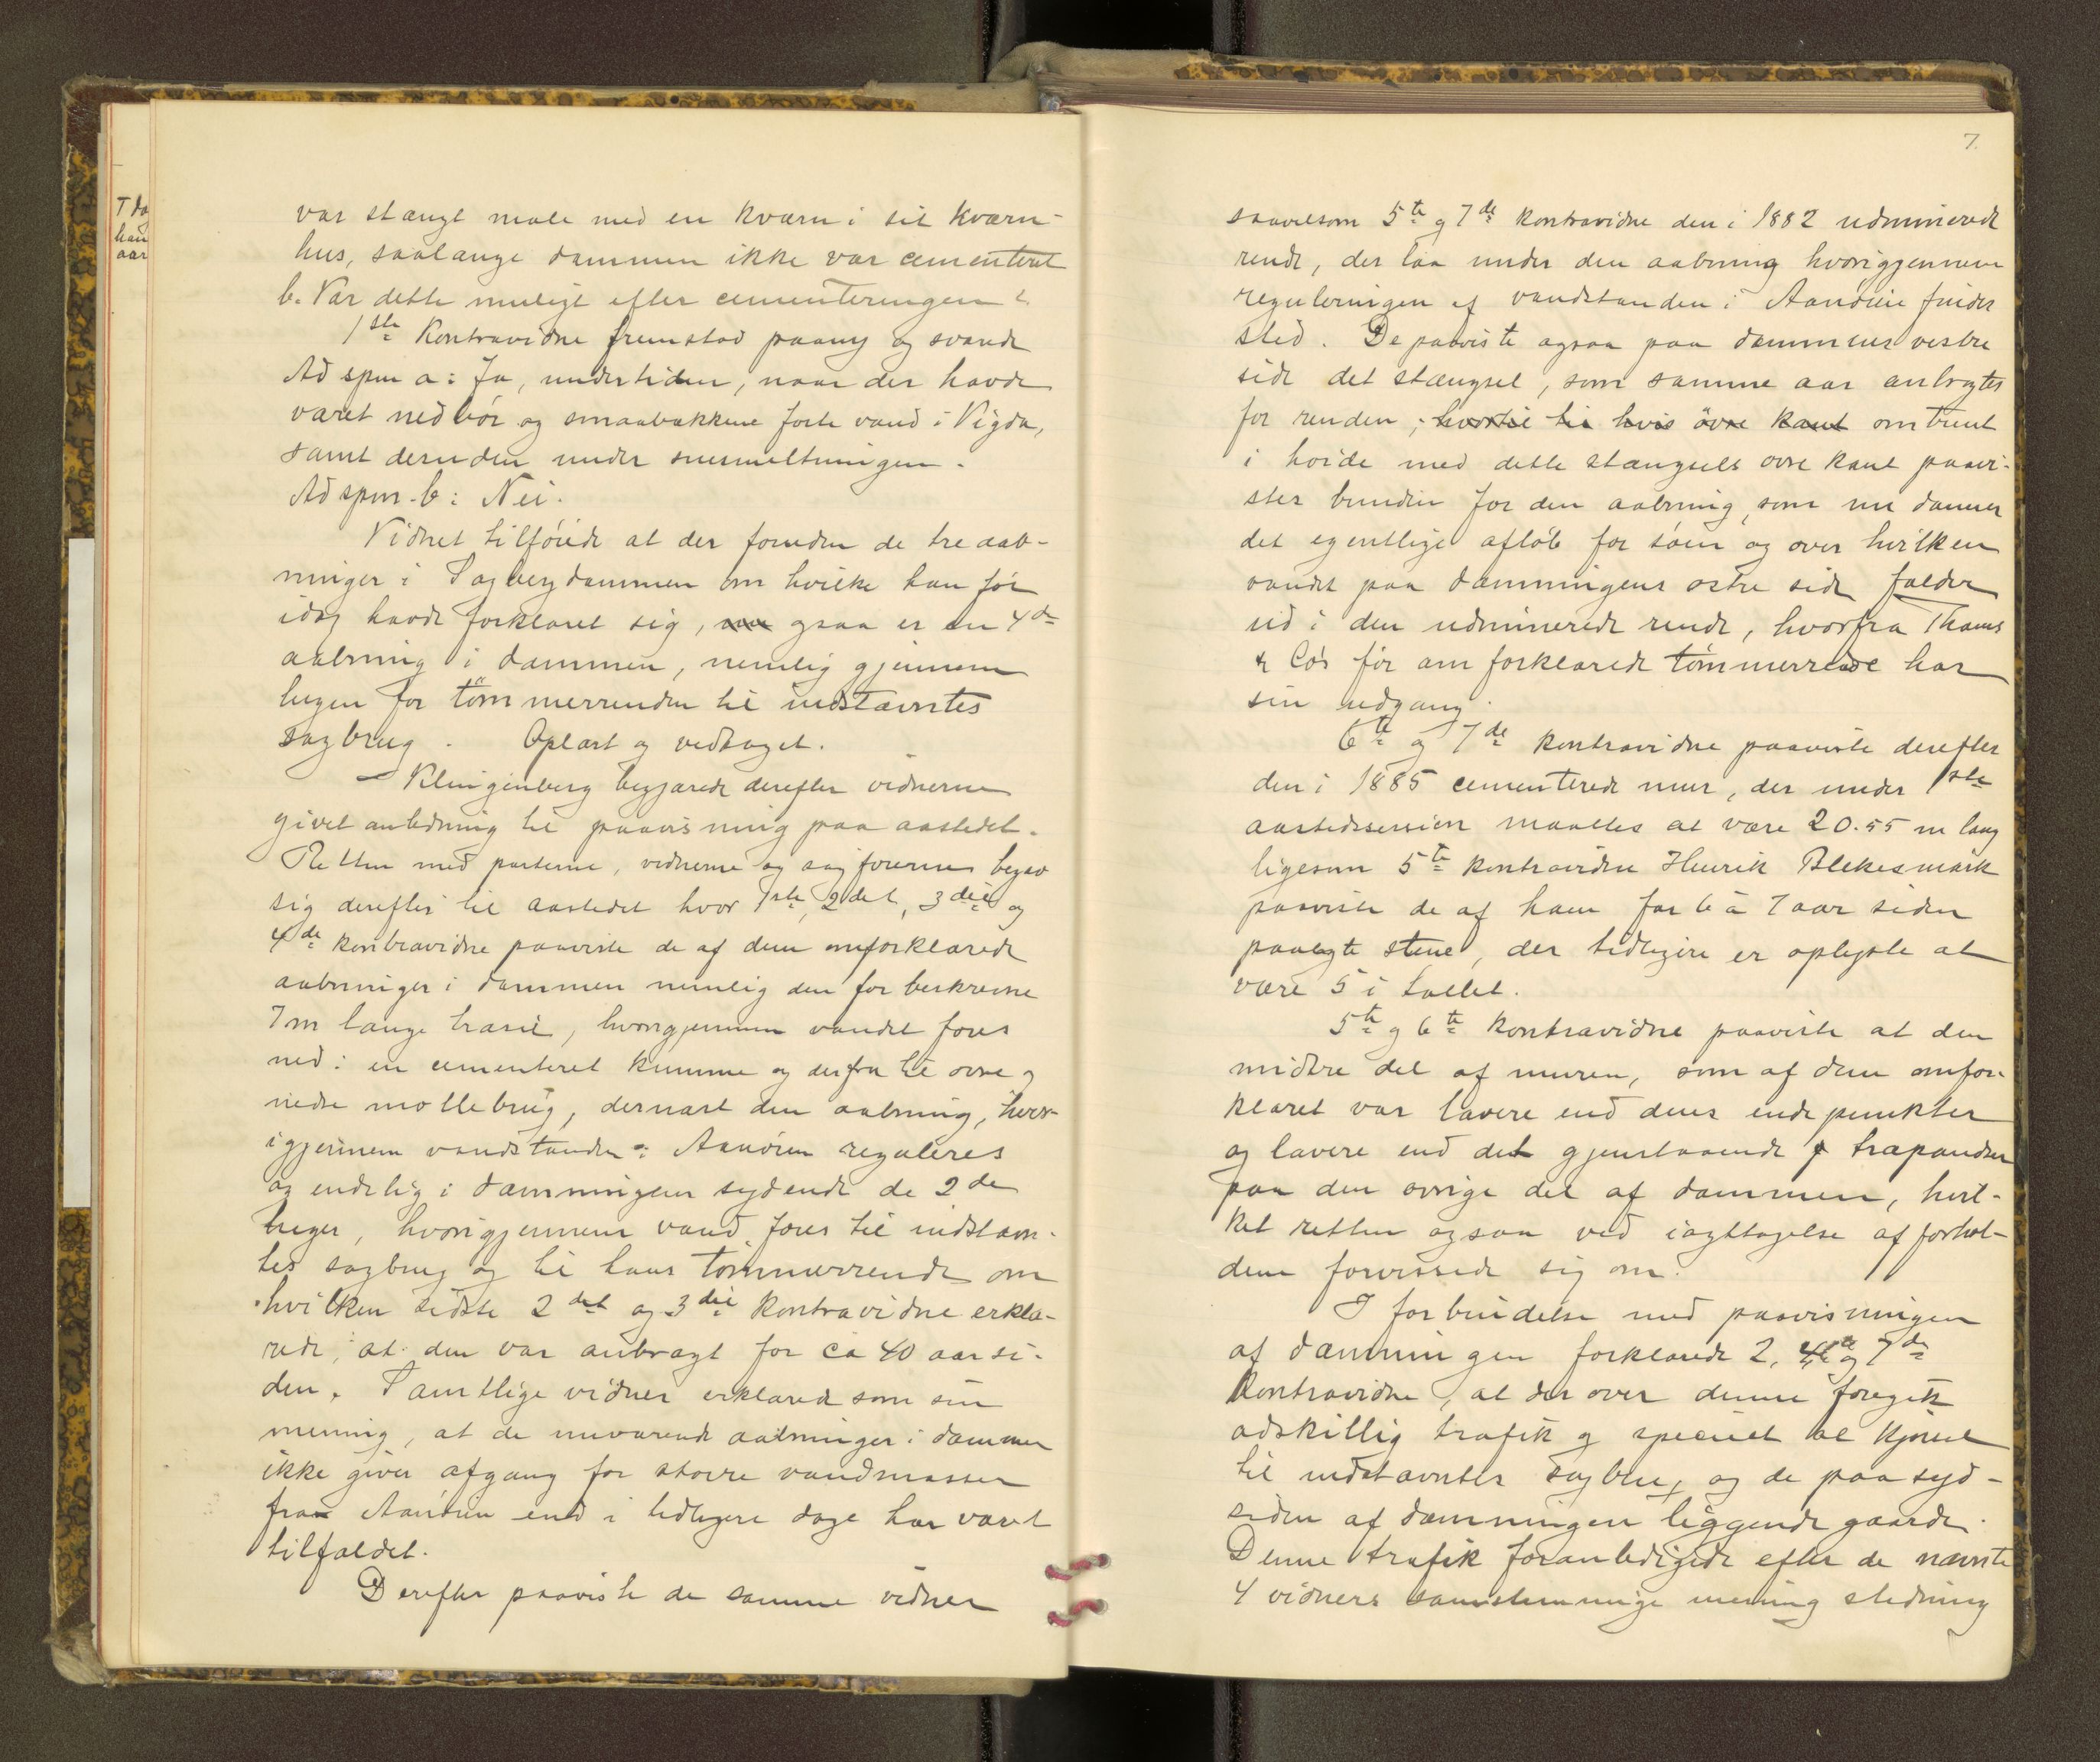 T do
han
aar
var stængt male med en kværn i sit kværn-
hus, saalænge dammen ikke var cementeret
b. Var dette muligt efter cementeringen?
1ste Kontravidne fremstod paany og svarede
Ad spm a: Ja, undertiden, naar der havde
været nedbør og smaabækkene førte vand i Vigda,
samt desuden under snesmeltningen.
Ad spm. b: Nei.
Vidnet tilføiede at der foruden de tre aab-
ninger i Sagbergdammen om hvilke han før
idag havde forklaret sig, ogsaa er en 4de
aabning i dammen, nemlig gjennem
lugen for tømmerrenden til indstævntes
sagbrug. Oplæst og vedtaget.
Klingenberg begjærede derefter vidnerne
givet anledning til paavisning paa aastedet.
Retten med parterne, vidnerne og sagførerne begav
sig derefter til aastedet hvor 1ste, 2det, 3die og
4de kontravidne paaviste de af dem omforklarede
aabninger i dammen nemlig den før beskrevne
7 m lange trasil, hvorigjennem vandet føres
ned i en cementeret kumme og derfra til øvre og
nedre møllebrug, dernæst den aabning, hvor-
igjennem vandstanden i Aanøien reguleres
og endelig i dæmningens sydende de 2de
luger, hvorigjennem vand føres til indstævn-
tes sagbrug og til hans tømmerrende om
hvilken sidste 2det og 3die Kontravidne erklæ-
rede, at den var anbragt for ca 40 aar si-
den. Samtlige vidner erklærede som sin
mening, at de nuværende aabninger i dammen
ikke giver afgang for større vandmasser
fra Aanøien end i tidligere dage har været
tilfældet.
Derefter paaviste de samme vidner
7.
saavelsom 5te og 7de kontravidne den i 1882 udminerede
rende, der laa under den aabning hvorigjennem
reguleringen af vandstanden i Aanøien finder
sted. De paaviste ogsaa paa dammens vestre
side det stængsel, som samme aar anbragtes
for renden; hvortil til hvis øvre kant omtrent
i høide med dette stængsels øvre kant paavi-
stes bunden for den aabning, som nu danner
det egentlige afløb for søen og over hvilken
vandet paa dæmningens østre side falder
ud i den udminerede rende, hvorfra Thams
& Co's før omforklarede tømmerrende har
sin udgang.
6te og 7de kontravidne paaviste derefter
den i 1885 cementerede mur, der under 1ste
aastedssession maaltes at være 20.55 m lang
ligesom 5te kontravidne Henrik Blekesmark
paaviste de af ham for 6 à 7 aar siden
paalagte stene, der tidligere er oplyste at
være 5 i tallet.
5te og 6te kontravidne paaviste at den
midtre del af muren, som af dem omfor-
klaret var lavere end dens endepunkter
og lavere end det gjenstaaende
paa den øvrige del af dammen, hvil-
ket retten ogsaa ved iagttagelse af forhol-
dene forvissede sig om.
I forbindelse med paavisningen
af dæmningen forklarede 2, og 7de
Kontravidne, at der over denne foregik
adskillig trafik og specielt al kjørsel
til indstævntes sagbrug og de paa syd-
siden af dæmningen liggende gaarde.
Denne trafik foranledigede efter de nævnte
4 vidners samstemmige mening